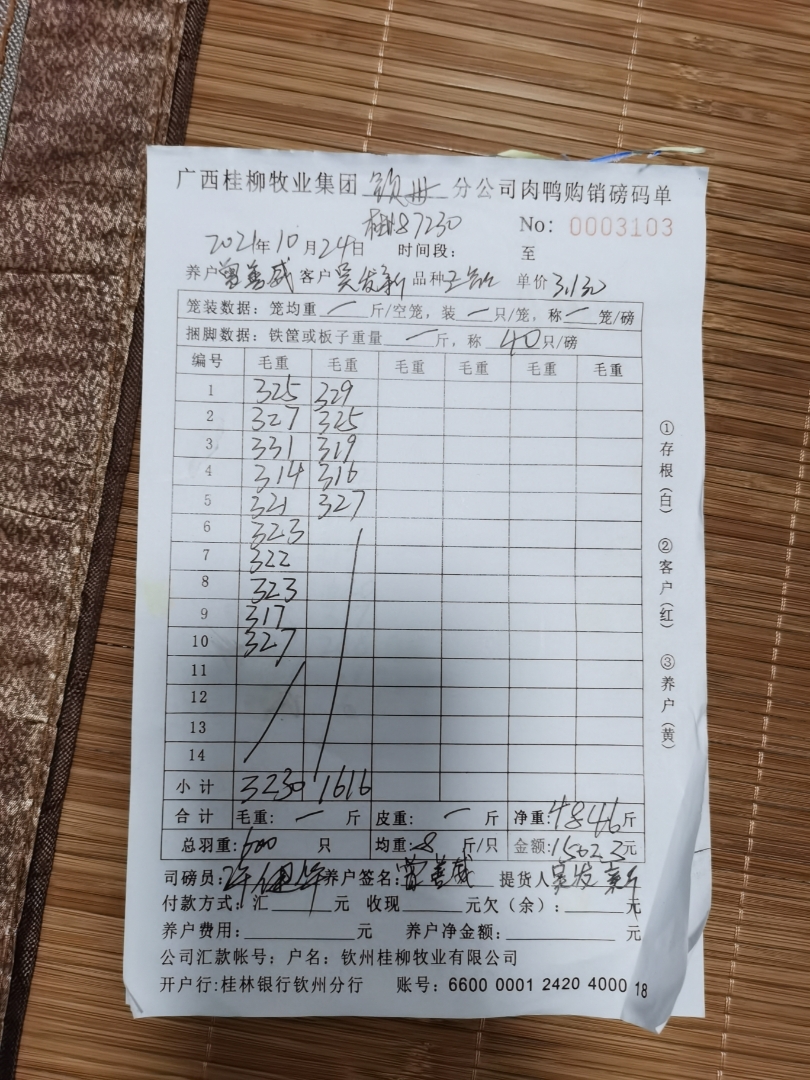 广西桂柳牧业集团 钦州 分公司肉鸭购销磅码单
桂N87230 No: 0003103
2021年10月24日 时间段: 至
养户曾善威 客户吴发新 品种 单价3.1元
笼装数据: 笼均重 一 斤/空笼, 装 一 只/笼, 称 一 笼/磅
捆脚数据: 铁筐或板子重量 一 斤, 称 40只/磅
编号 毛重 毛重 毛重 毛重 毛重 毛重
1 325 329
2 327 325
3 331 319
4 314 316
5 321 327
6 323
7 322
8 323
9 317
10 327
11
12
13
14
小计 3230 1616
合计 毛重: 一 斤 皮重: 一 斤 净重:4846斤
总羽重:600 只 均重:8 斤/只 金额:15023元
司磅员: 养户签名:曾善威 提货人吴发新
付款方式: 汇 元 收现 元欠(余): 元
养户费用: 元 养户净金额: 元
公司汇款帐号: 户名: 钦州桂柳牧业有限公司
开户行:桂林银行钦州分行 账号: 6600 0001 2420 4000 18
①存根(白) ②客户(红) ③养户(黄)